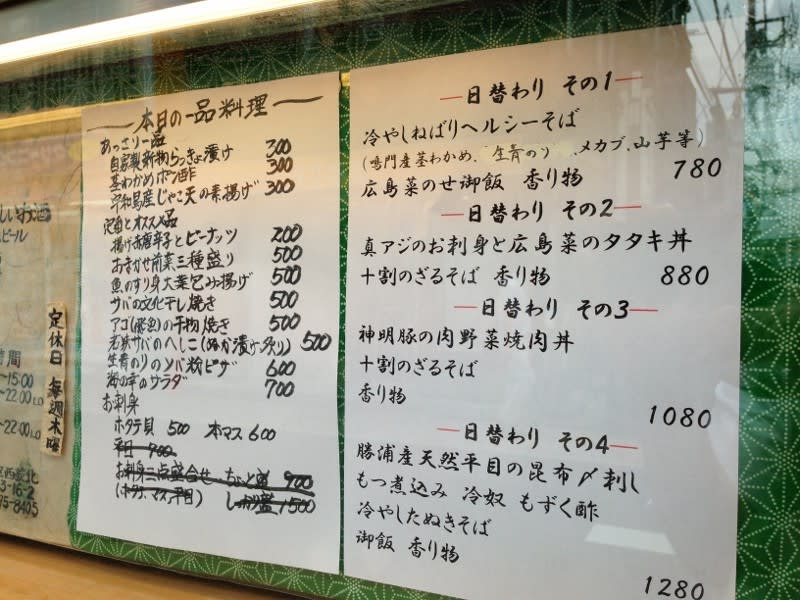 しいお酒
ビール
時間
〜15:00
〜22:00 L.O
〜22:00 L.O
区西荻北
3-16-2
95-8405
定休日 毎週木曜
本日の一品料理
あっさり一品
自家製新物らっきょ漬け 300
茎わかめポン酢 300
宇和島産じゃこ天の素揚げ 300
定番とオススメ品
揚げ赤唐辛子とピーナッツ 200
おまかせ前菜三種盛り 500
魚のすり身大葉包み揚げ 500
サバの文化干し焼き 500
アゴ(飛魚)の干物焼き 500
若狭サバのへしこ(ぬか漬け炙り) 500
生青のりのソバ粉ピザ 600
海の幸のサラダ 700
お刺身
ホタテ貝 500 本マス 600
平目 700
お刺身三点盛合せ ちょっと盛 900
(ホタテ、マス、平目) しっかり盛 1500
日替わり その1
冷やしねばりヘルシーそば
(鳴門産茎わかめ、生青のり、メカブ、山芋等)
広島菜のせ御飯 香り物 780
日替わり その2
真アジのお刺身と広島菜のタタキ丼
十割のざるそば 香り物 880
日替わり その3
神明豚の肉野菜焼肉丼
十割のざるそば
香り物
1080
日替わり その4
勝浦産天然平目の昆布〆刺し
もつ煮込み 冷奴 もずく酢
冷やしたぬきそば
御飯 香り物
1280